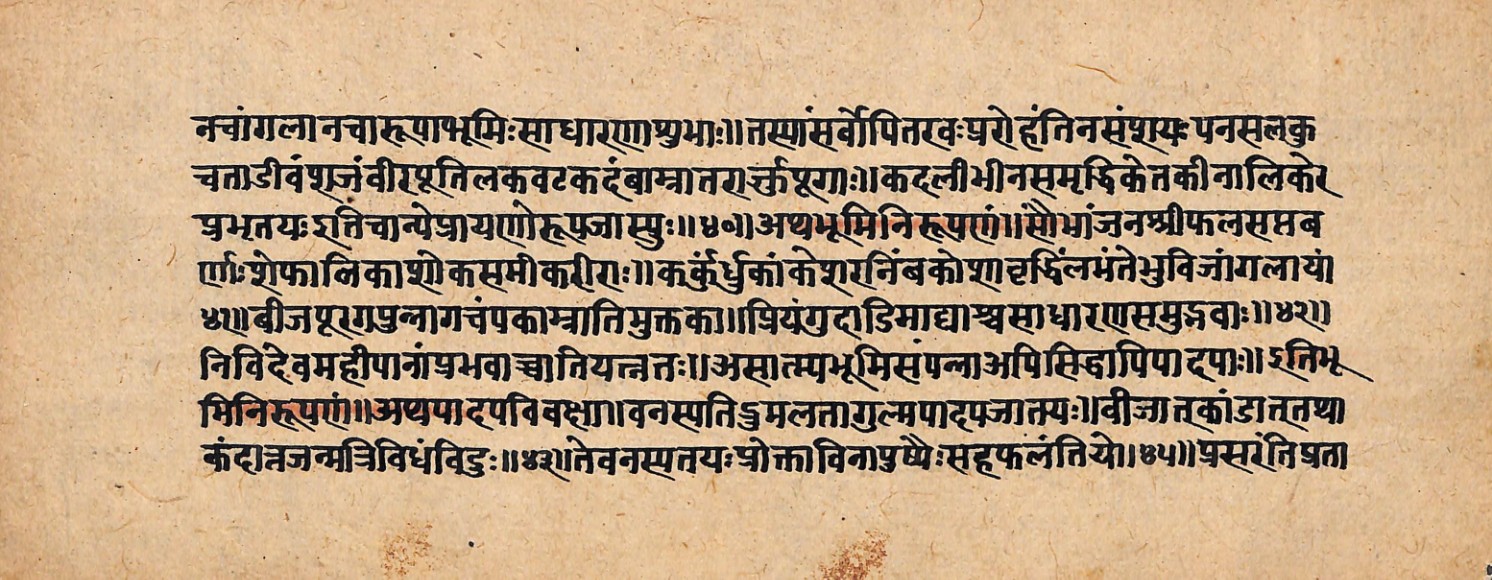 नचांगलानचारूपाभूमिःसाधारणाशुभाः॥तस्यांसर्वोपितरवःप्ररोहंतिनसंशयः पनसलकु
चताडीवंशजंबीरपूतिलकवटकदंबाम्रातरार्च्कपूगाः॥कदलीभीनसमृद्विकेतकीनालिकेर
प्रभृतयःइतिचान्येप्रायणोरूपजास्युः॥४१॥अथभूमिनिरूपणं॥सौभांजनश्रीफलसप्तब
र्णाःशेफालिकाशोकसमीकरीराः॥कर्कुर्धुकांकेशरनिंबकोशावृद्विंलभंतेभुविजांगलायां
४१॥बीजपूरगपुन्नागचंपकाम्रातिमुक्तका॥प्रियंगुदाडिमाद्याश्चसाधारणसमुद्भवाः॥४२॥
निविदेवमहीपानांप्रभवाच्चातियत्नतः॥असात्म्यभूमिसंपन्नाअपिसिद्वापिपादपाः॥इतिभू
मिनिरूपणं॥अथपादपविवक्षा॥वनस्पतिद्रुमलतागुल्मपादपजातयः॥वीजात्तकांडात्ततथा
कंदान्नजन्मत्रिविधंविदुः॥४३॥तेवनस्पतयःप्रोक्ताविनापुष्पैःसहफलंतिये॥४५॥प्रसरंतिप्रता